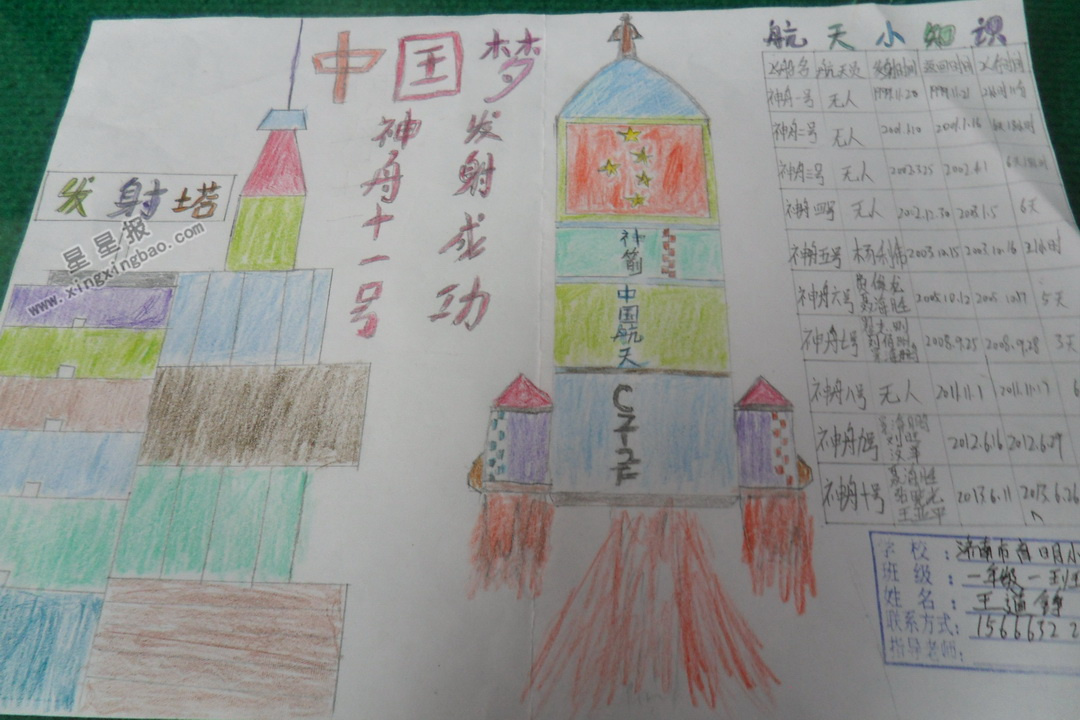 中国梦
发射成功
神舟十一号
发射塔
星星报
www.xingxingbao.com
神箭
中国航天
CZ-2F
航天小知识
飞船名 航天员 发射时间 返回时间 飞行时间
神舟一号 无人 1999.11.20 1999.11.21
神舟二号 无人 2001.1.10 2001.1.16
神舟三号 无人 2002.3.25 2002.4.1
神舟四号 无人 2012.12.30 2003.1.5 6天
神舟五号 杨利伟 2003.10.15 2003.10.16 21小时
神舟六号 费俊龙 聂海胜 2005.10.12 2005.10.17 5天
神舟七号 翟志刚 2008.9.25 2008.9.28 3天
神舟八号 无人 2011.11.1 2011.11.17
神舟九号 2012.6.16 2012.6.29
神舟十号 聂海胜 张晓光 王亚平 2013.6.11 2013.6.26
学校:济南市育日月小
班级:一年级一班
姓名:王道铮
联系方式:1566632 2
指导老师: